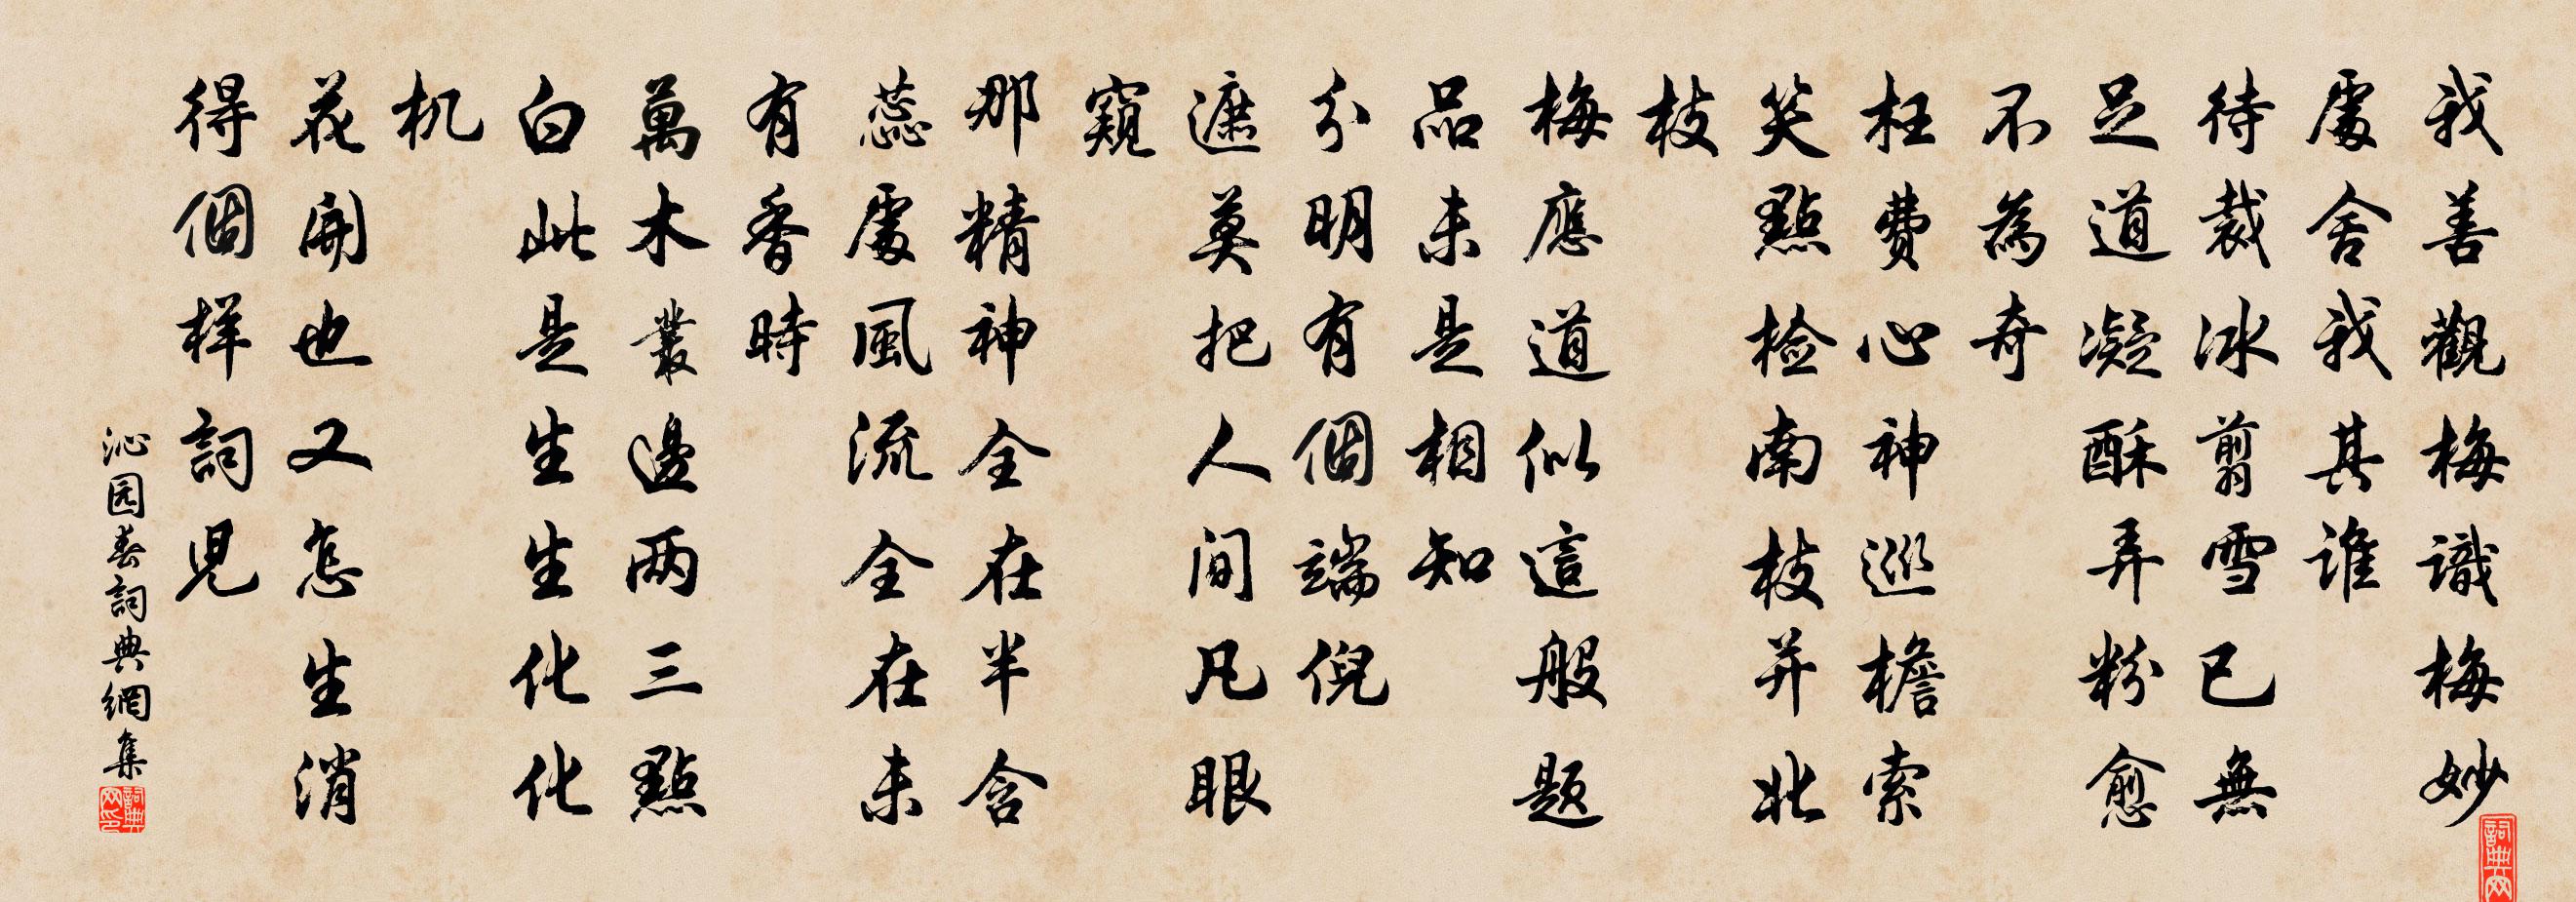 我善觀梅識梅妙
處舍我其谁
待裁冰剪雪已無
足道凝酥弄粉愈
不為奇
枉費心神巡檐索
笑點检南枝并北
枝
梅應道似這般题
品未是相知
分明有個端倪
遮莫把人间凡眼
窺
那精神全在半含
蕊處風流全在未
有香時
萬木叢邊两三點
白此是生生化化
机
花開也又怎生消
得個样詞児
沁园春詞典網集
詞典网印
詞典网